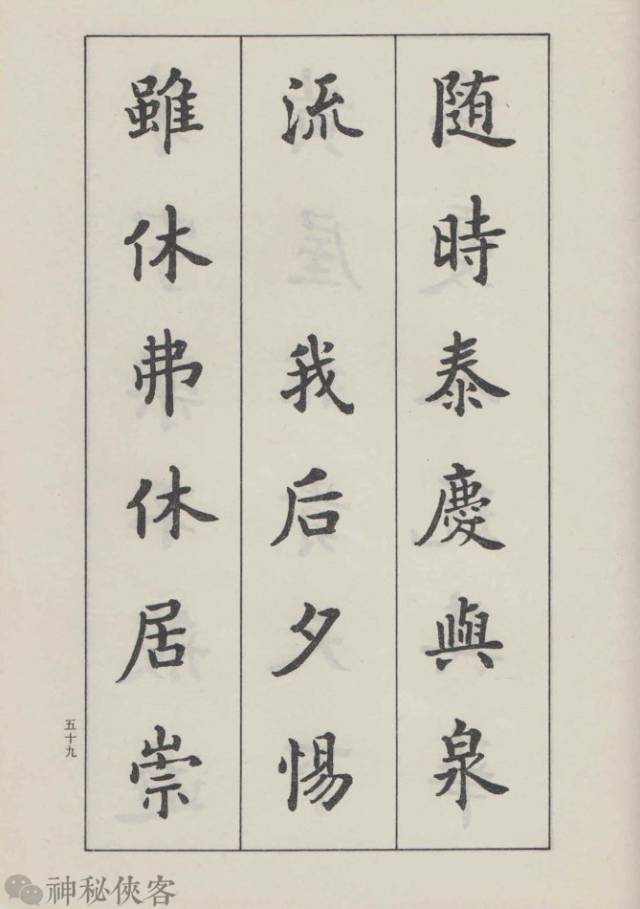 随時泰慶與泉
流 我后夕惕
雖休弗休居崇
五十九
神秘俠客